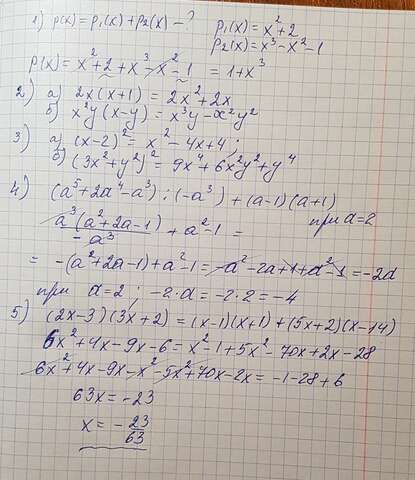 1) p(x) = p₁(x) + p₂(x) - ? p₁(x) = x² + 2
p₂(x) = x³ - x² - 1
p(x) = x² + 2 + x³ - x² - 1 = 1 + x³
2) а) 2x(x+1) = 2x² + 2x
б) x²y(x-y) = x³y - x²y²
3) а) (x-2)² = x² - 4x + 4 ;
б) (3x² + y²)² = 9x⁴ + 6x²y² + y⁴
4) (a⁵ + 2a⁴ - a³) : (-a³) + (a-1)(a+1)
при a = 2
a³(a² + 2a - 1) / -a³ + a² - 1 =
= -(a² + 2a - 1) + a² - 1 = -a² - 2a + 1 + a² - 1 = -2a
при a = 2 ; -2·a = -2·2 = -4
5) (2x-3)(3x+2) = (x-1)(x+1) + (5x+2)(x-14)
6x² + 4x - 9x - 6 = x² - 1 + 5x² - 70x + 2x - 28
6x² + 4x - 9x - x² - 5x² + 70x - 2x = -1 - 28 + 6
63x = -23
x = - 23/63